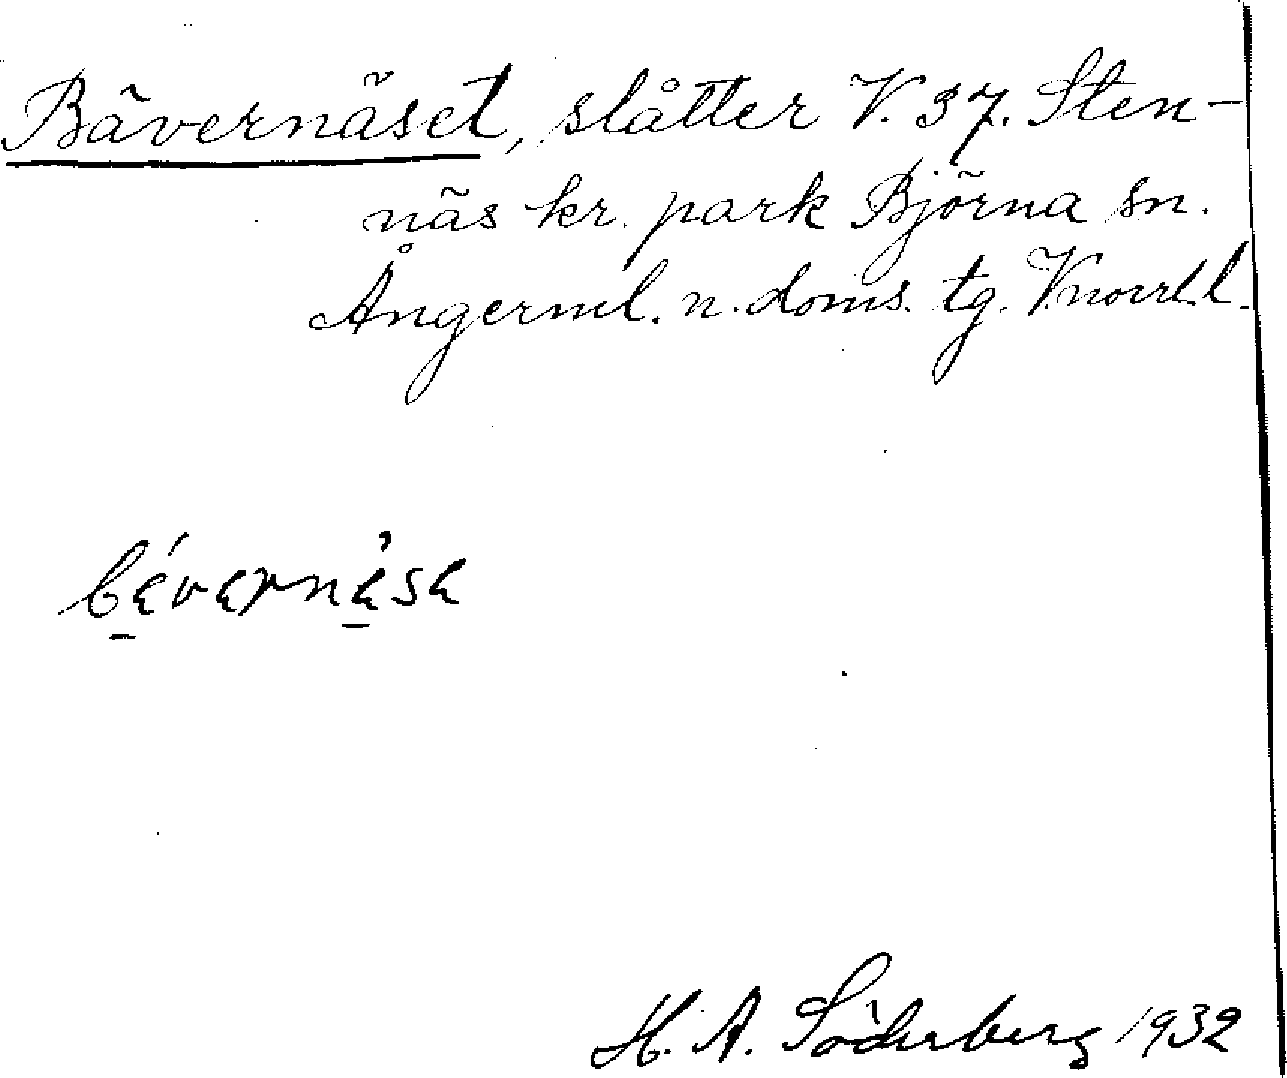 Bävernäset, slåtter V. 37. Sten-
näs kr. park Björna sn.
Ångerml. n. doms. tg. Vnorrl. l.
H. A. Söderberg 1932